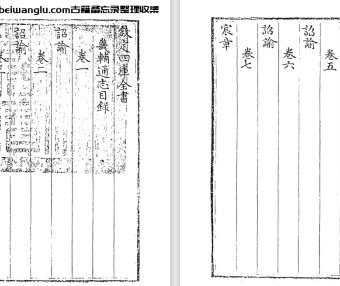 beiwanglu.com古籍备忘录整理收集
欽定四庫全書
畿輔通志目錄
卷一
詔諭
卷二
詔諭
卷五
詔諭
卷六
詔諭
卷七
宸章